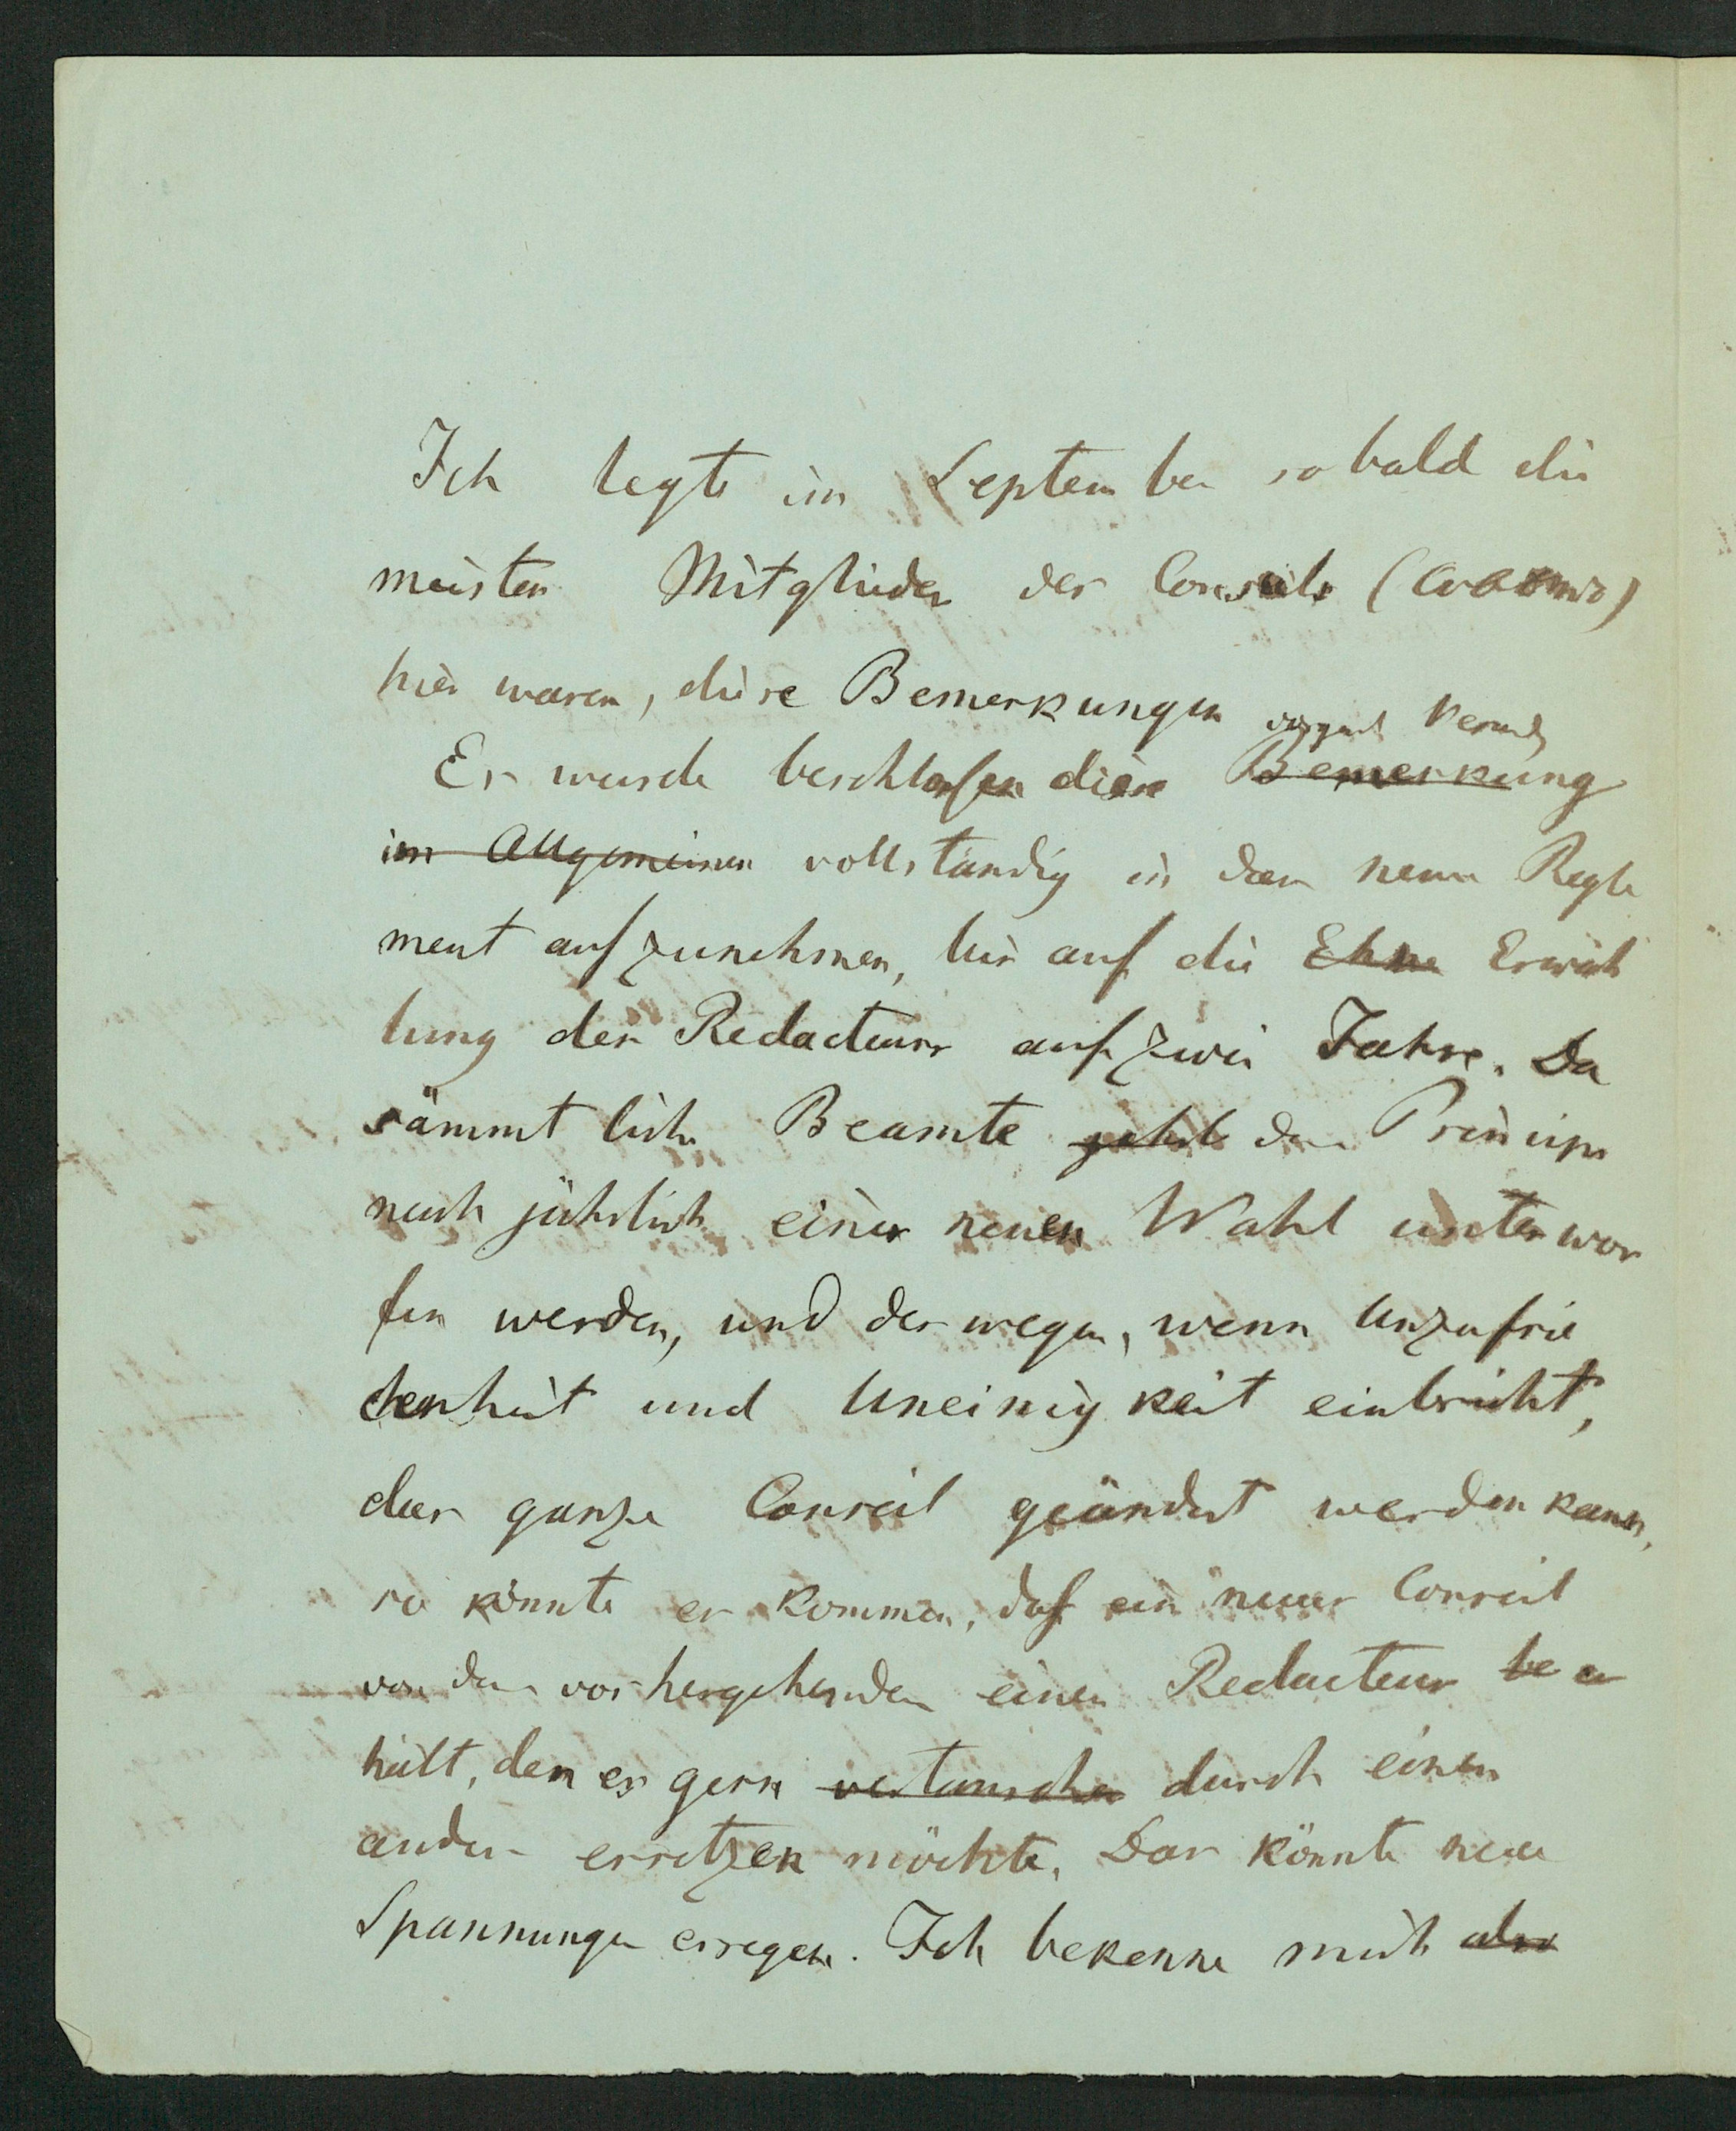 Ich legte im September sobald die
meisten Mitglieder des Conseils
hier waren, diese Bemerkungen
Es wurde beschlossen diese Bemerkung
im Allgemeinen vollständig in das neue Regle
ment aufzunehmen, bis auf die Erwäh
lung des Redacteurs auf zwei Jahre. Da
sämmtliche Beamte dem Princip
nach jährlich einer neuen Wahl unterwor
fen werden, und deswegen, wenn Unzufrie
denheit und Uneinigkeit einbricht,
das ganze Conseil geändert werden kann,
so könnte es kommen, daß ein neues Conseil
von dem vorhergehenden einen Redacteur be er
hält, den es gern vertauschen durch einen
andern ersetzen möchte. Das könnte neue
Spannungen erregen. Ich bekenne mich also